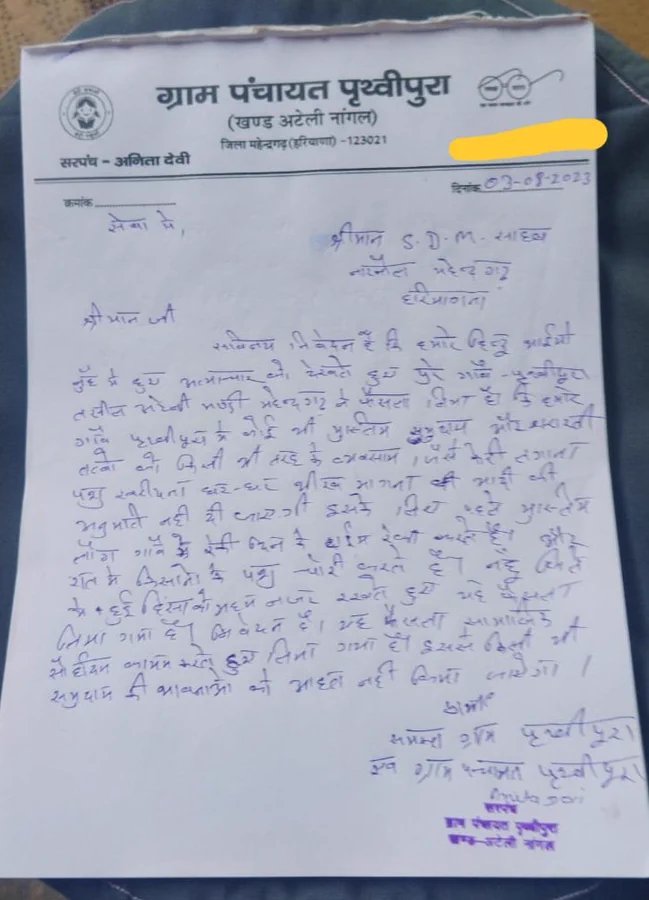 ग्राम पंचायत पृथ्वीपुरा
(खण्ड अटेली नांगल)
जिला महेन्द्रगढ़ (हरियाणा) -123021
सरपंच - अनिता देवी
क्रमांक
दिनांक 03-08-2023
सेवा मे,
श्रीमान S.D.M. साहब
नारनौल महेन्द्रगढ़
हरियाणा
श्री मान जी
सविनय निवेदन है कि हमारे हिन्दु भाईयो
हुए अत्याचार को देखते हुए पुरे गाँव पृथ्वीपुरा
मण्डी महेन्द्रगढ़ ने फैसला लिया है कि हमारे
गाँव पृथ्वीपुरा मे कोई भी मुस्लिम समुदाय और शरारती
तत्वो को किसी भी तरह के व्यवसाय, जैसे फेरी लगाना
पशु खरीदना घर-घर भीख मागना की आदी की
अनुमति नही दी जाएगी इसके लिए पहले मुस्लिम
लोग गाँव मे फेरी दिन के टाईम करते है। और
रात मे किसानो के पशु चोरी करते है। नूंह जिले
मे हुई हिंसा को नजर रखते हुए यह फैसला
लिया गया है। निवेदन है। यह फैसला सामाजिक
सौहार्दय कायम करते हुए लिया गया है। इससे किसी भी
समुदाय की भावनाओ को आहत नही किया जायेगा।
प्रार्थी
समस्त ग्राम पृथ्वीपुरा
एव ग्राम पन्चायत पृथ्वीपुरा
सरपंच
ग्राम पंचायत पृथ्वीपुरा
खण्ड-अटेली नांगल